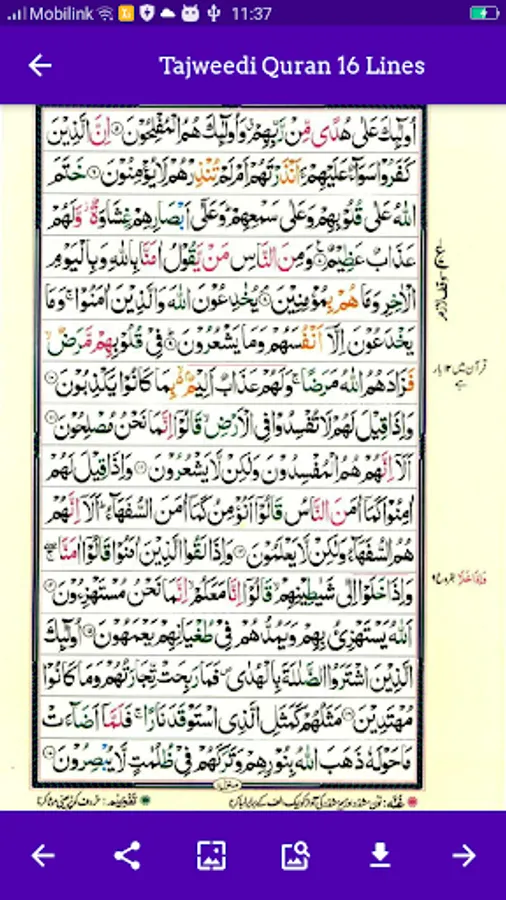 Mobilink 11:37
Tajweedi Quran 16 Lines
اُولٰٓئِكَ عَلٰى هُدًى مِّنْ رَّبِّهِمْ وَاُولٰٓئِكَ هُمُ الْمُفْلِحُوْنَ ۝۵ اِنَّ الَّذِيْنَ
كَفَرُوْا سَوَآءٌ عَلَيْهِمْ ءَاَنْذَرْتَهُمْ اَمْ لَمْ تُنْذِرْهُمْ لَا يُؤْمِنُوْنَ ۝۶ خَتَمَ
اللّٰهُ عَلٰى قُلُوْبِهِمْ وَعَلٰى سَمْعِهِمْ ؕ وَعَلٰٓى اَبْصَارِهِمْ غِشَاوَةٌ ؗ وَّلَهُمْ
عَذَابٌ عَظِيْمٌ ۝۷ وَمِنَ النَّاسِ مَنْ يَّقُوْلُ اٰمَنَّا بِاللّٰهِ وَبِالْيَوْمِ
الْاٰخِرِ وَمَا هُمْ بِمُؤْمِنِيْنَ ۝۸ يُخٰدِعُوْنَ اللّٰهَ وَالَّذِيْنَ اٰمَنُوْا ۚ وَمَا
يَخْدَعُوْنَ اِلَّآ اَنْفُسَهُمْ وَمَا يَشْعُرُوْنَ ۝۹ فِيْ قُلُوْبِهِمْ مَّرَضٌ ۙ
فَزَادَهُمُ اللّٰهُ مَرَضًا ۚ وَلَهُمْ عَذَابٌ اَلِيْمٌ ۢ ۙ بِمَا كَانُوْا يَكْذِبُوْنَ ۝۱۰
وَاِذَا قِيْلَ لَهُمْ لَا تُفْسِدُوْا فِى الْاَرْضِ ۙ قَالُوْٓا اِنَّمَا نَحْنُ مُصْلِحُوْنَ ۝۱۱
اَلَآ اِنَّهُمْ هُمُ الْمُفْسِدُوْنَ وَلٰكِنْ لَّا يَشْعُرُوْنَ ۝۱۲ وَاِذَا قِيْلَ لَهُمْ
اٰمِنُوْا كَمَآ اٰمَنَ النَّاسُ قَالُوْٓا اَنُؤْمِنُ كَمَآ اٰمَنَ السُّفَهَآءُ ؕ اَلَآ اِنَّهُمْ
هُمُ السُّفَهَآءُ وَلٰكِنْ لَّا يَعْلَمُوْنَ ۝۱۳ وَاِذَا لَقُوا الَّذِيْنَ اٰمَنُوْا قَالُوْٓا اٰمَنَّا ۚۖ
وَاِذَا خَلَوْا اِلٰى شَيٰطِيْنِهِمْ ۙ قَالُوْٓا اِنَّا مَعَكُمْ ۙ اِنَّمَا نَحْنُ مُسْتَهْزِءُوْنَ ۝۱۴
اَللّٰهُ يَسْتَهْزِئُ بِهِمْ وَيَمُدُّهُمْ فِيْ طُغْيَانِهِمْ يَعْمَهُوْنَ ۝۱۵ اُولٰٓئِكَ
الَّذِيْنَ اشْتَرَوُا الضَّلٰلَةَ بِالْهُدٰى ۪ فَمَا رَبِحَتْ تِّجَارَتُهُمْ وَمَا كَانُوْا
مُهْتَدِيْنَ ۝۱۶ مَثَلُهُمْ كَمَثَلِ الَّذِى اسْتَوْقَدَ نَارًا ۚ فَلَمَّآ اَضَآءَتْ
مَا حَوْلَهٗ ذَهَبَ اللّٰهُ بِنُوْرِهِمْ وَتَرَكَهُمْ فِيْ ظُلُمٰتٍ لَّا يُبْصِرُوْنَ ۝۱۷
قرآن میں ۱۲ بار
ہے